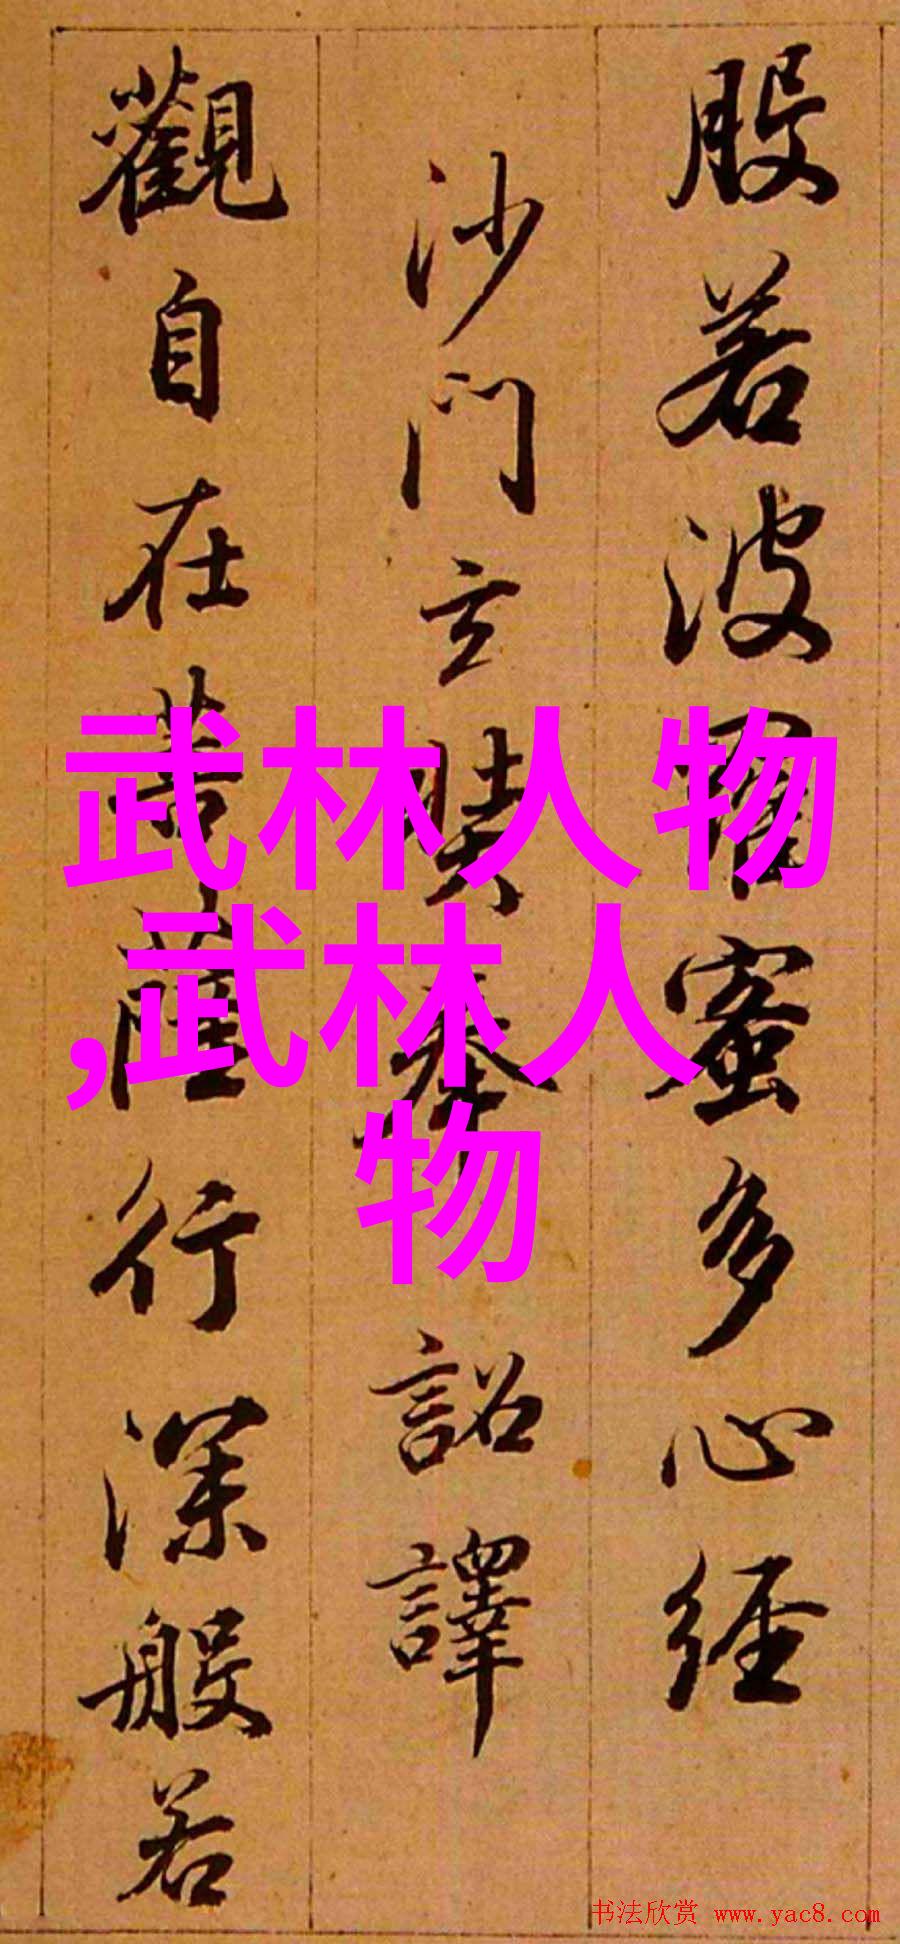 般若波羅蜜多心经
沙門玄奘奉詔譯
觀自在菩薩行深般若
武林人物
,武林人
物
书法欣赏 www.yac8.com